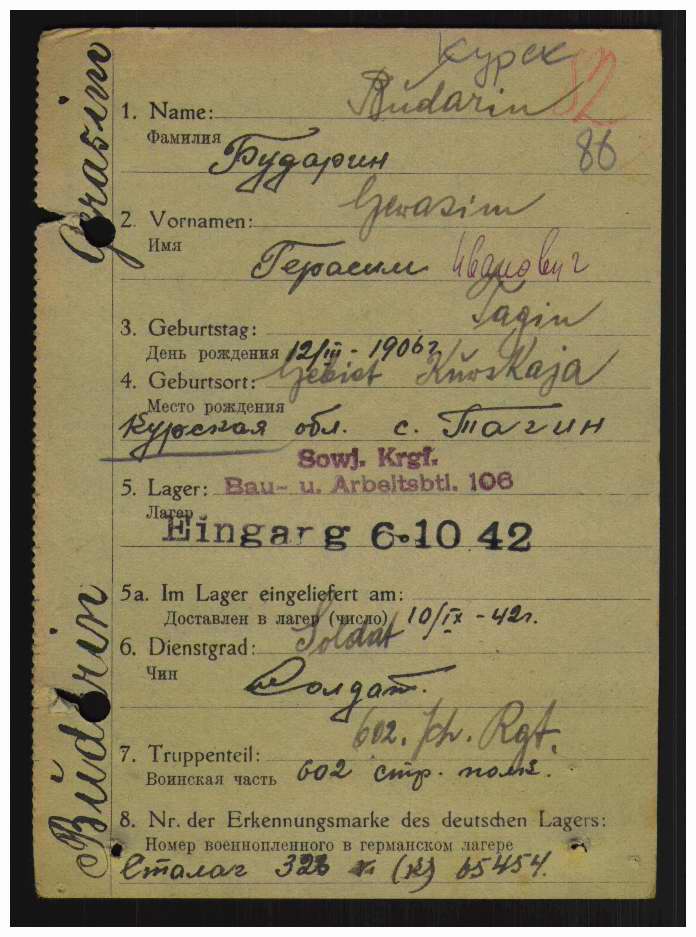 Курск
52
1. Name: Budarin
Фамилия Бударин
86
2. Vornamen: Gerasim
Имя Герасим Иванович
Tagin
3. Geburtstag:
День рождения 12/III - 1906г
4. Geburtsort: Gebiet Kurskaja
Место рождения
Курская обл. с. Тагин
Sowj. Krgf.
5. Lager: Bau- u. Arbeitsbtl. 106
Лагер
Eingarg 6·10 42
5a. Im Lager eingeliefert am:
Доставлен в лагер (число) 10/IX - 42г.
6. Dienstgrad: Soldat
Чин Солдат.
602. Sch. Rgt.
7. Truppenteil:
Воинская часть 602 стр. полк.
8. Nr. der Erkennungsmarke des deutschen Lagers:
Номер военнопленного в германском лагере
Сталаг 328 (к) 65454.
Budarin Gerasim